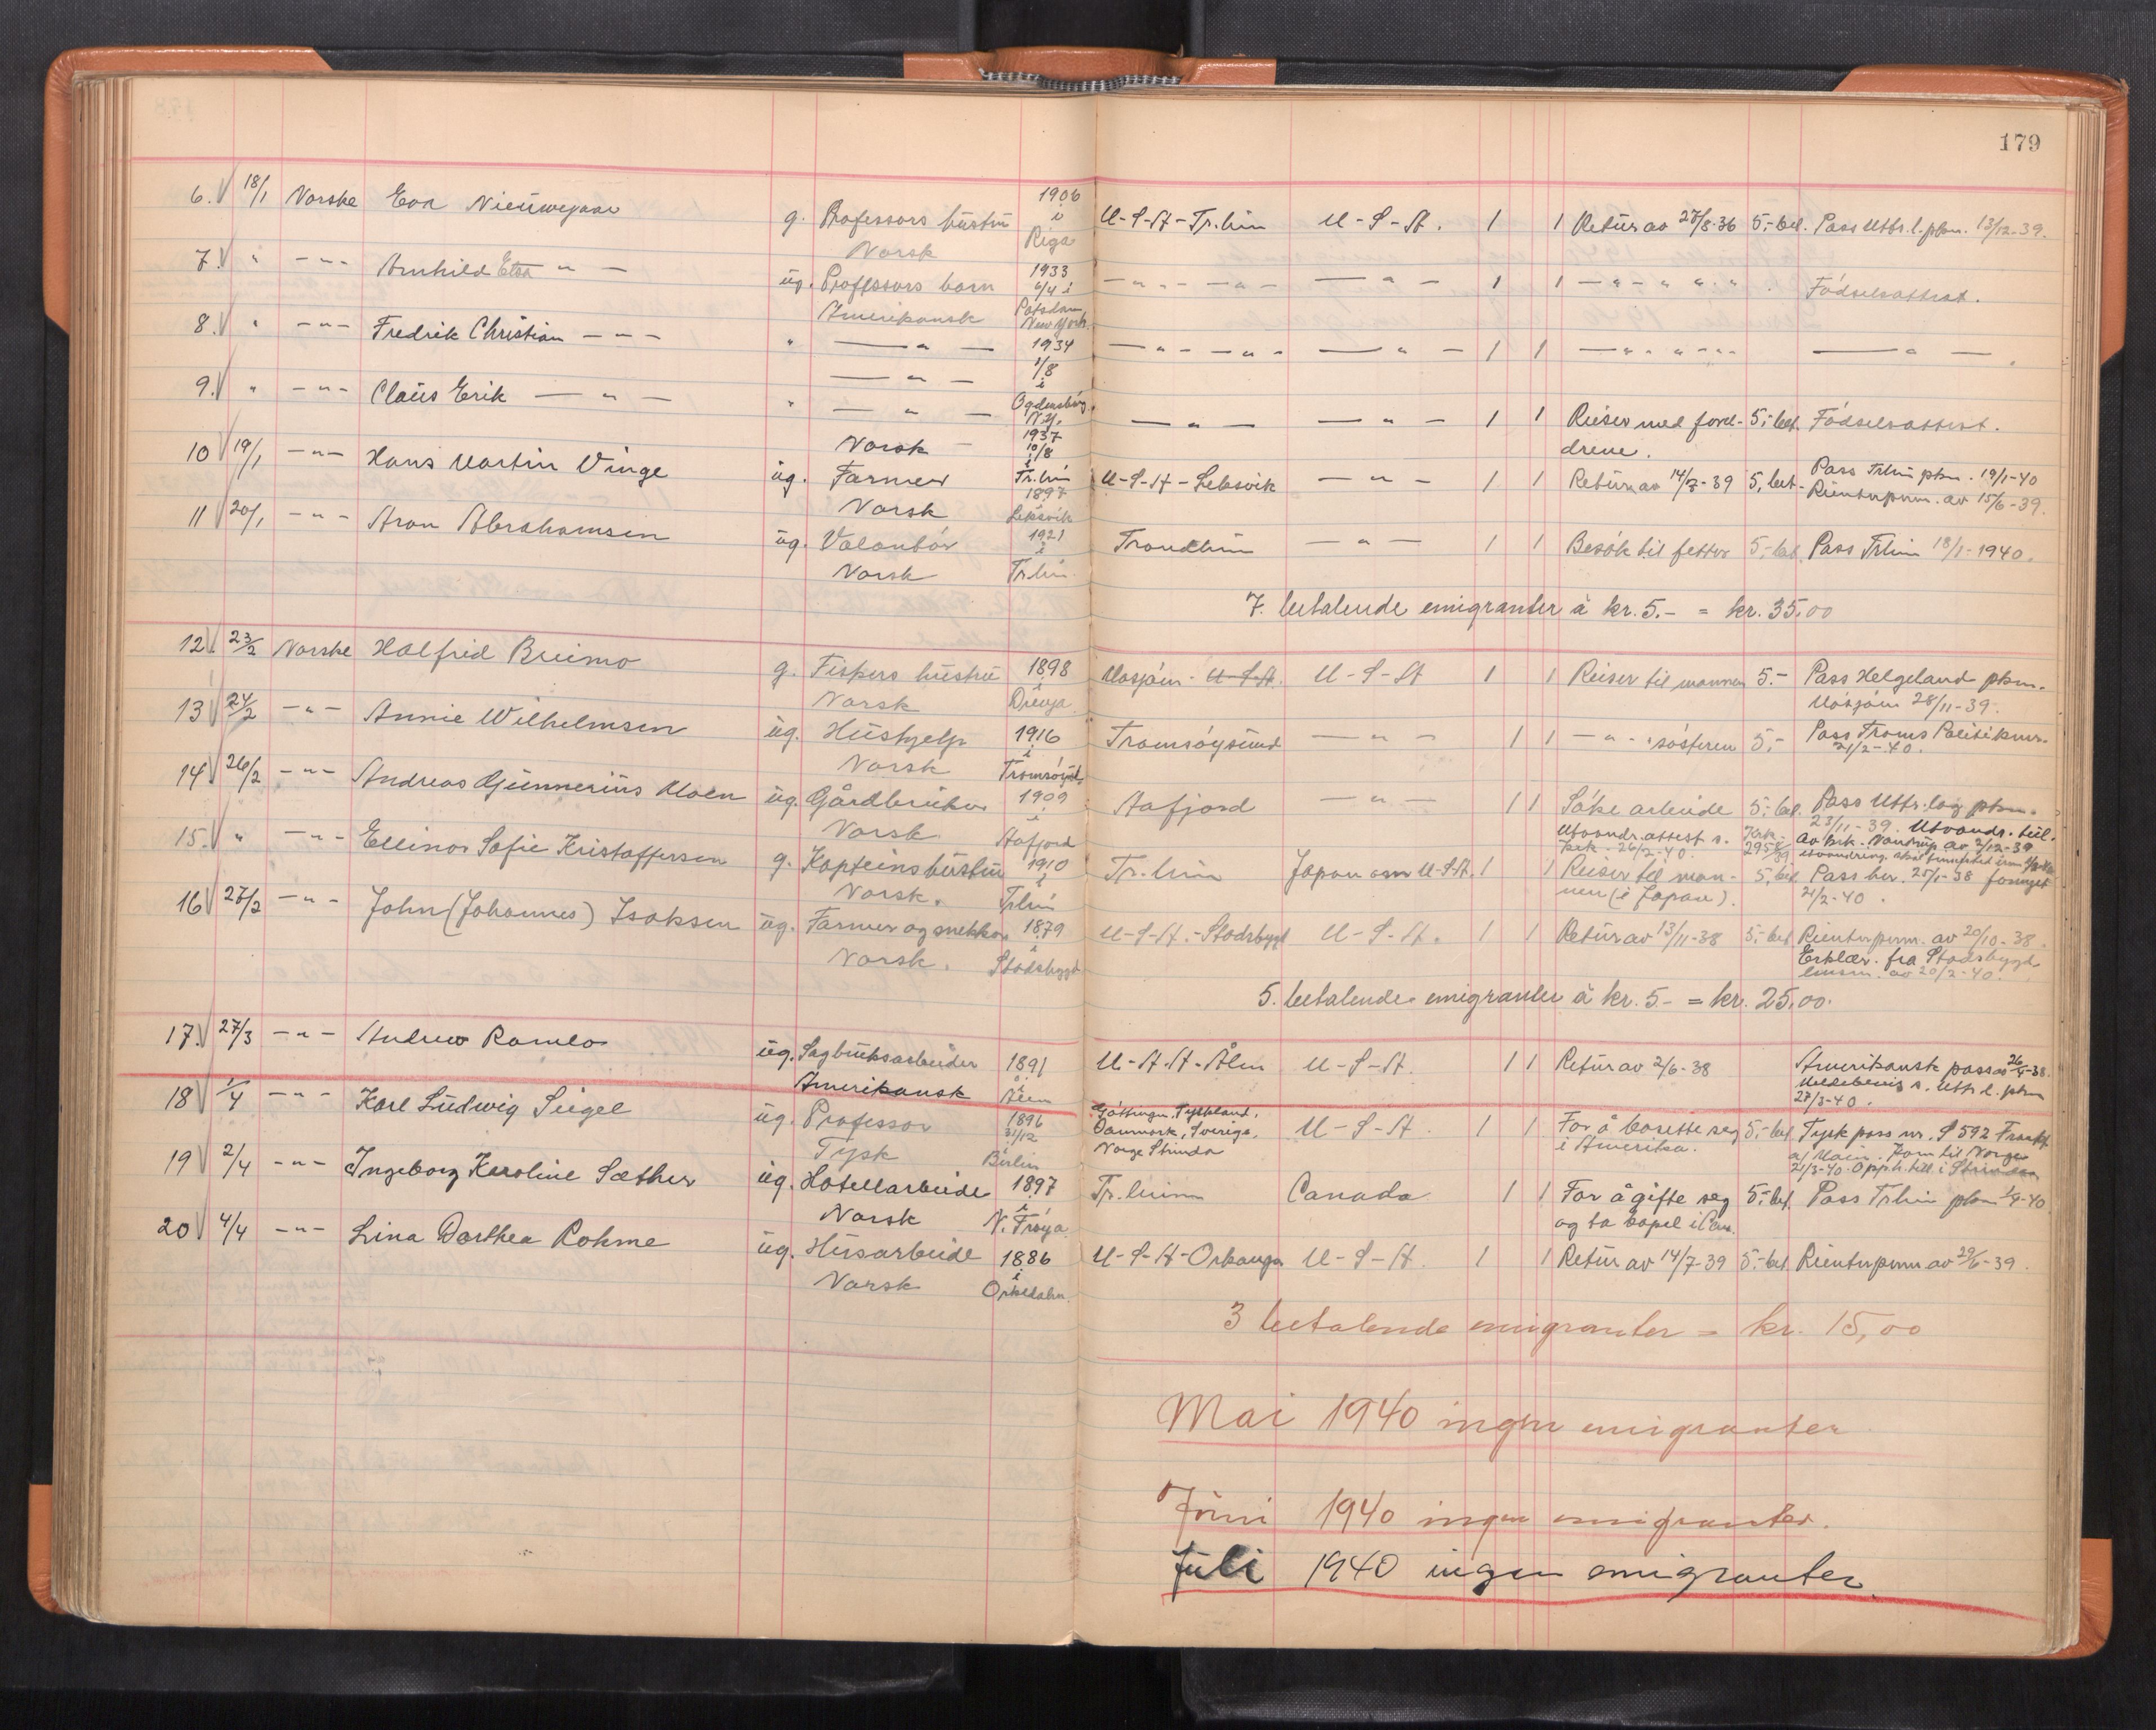 179
6. 18/1 Norske Eva Nieuwejaar g. Professors hustru 1906 i U-S-A-Tr.him U-S-A. 1 1 Retur av 27/8-36 5,- bet. Pass Utbr. l. pkm. 13/12-39.
Norsk Riga
7. " -"- Arnhild Elsa -"- ug. Professors barn 1933 6/4 i -"- -"- -"- 1 1 -"- " " " Födselsattest.
Amerikansk Potsdam New York
8. " -"- Fredrik Christian -"- " -"- 1934 -"- -"- -"- 1 1 -"- " " -"- -"-
-"- 1/8 i
9. " -"- Claus Erik -"- " -"- Ogdensburg N.Y. -"- -"- 1 1 Reiser med forel- 5,- bet. Födselsattest.
Norsk 1937 10/8 i drene.
10 19/1 -"- Hans Martin Vinge ug. Farmer Tr.him 1897 U-S-A-Leksvik -"- 1 1 Retur av 14/7-39 5,- bet. Pass Trhim pkm. 19/1-40
Norsk Leksvik Rienterperm. av 15/6-39.
11 20/1 -"- Aron Abrahamsen ug. Volontör 1921 i Trondhim -"- 1 1 Besök til fetter 5,- bet. Pass Trhim 18/1-1940.
Norsk Tr.him
7. betalende emigranter à kr. 5.- = kr. 35,00
12. 23/2 Norske Halfrid Breimo g. Fiskers hustru 1898 i Mosjöen - U-S-A. U-S-A 1 1 Reiser til mannen 5.- Pass Helgeland pkm.
Norsk Drevja Mosjöen 28/11-39.
13 24/2 -"- Annie Wilhelmsen ug. Hushjelp 1916 i Tromsöysund -"- 1 1 -"- " söstren 5,- Pass Troms Politikmr.
Norsk Tromsöysd. 21/2-40.
14. 26/2 -"- Andreas Gunnerius Moen ug. Gårdbruker 1909 i Aafjord -"- 1 1 Söke arbeide 5,- bet. Pass Uttr.lag pkm.
Norsk Aafjord Utvandr.attest 26/2-40. 2958/39 23/11-39. Utvandr. till. av 2/12-39
15. " -"- Ellinor Sofie Kristoffersen g. Kapteins hustru 1910 i Tr.him Japan om U-S-A. 1 1 Reiser til man- 5,- bet. Pass her. 25/1-38 fornyet
Norsk. Trhim nen (i Japan). 21/2-40.
16 27/2 -"- John (Johannes) Isaksen ug. Farmer og snekker 1879 i U-S-A.-Stadsbygd U-S-A. 1 1 Retur av 13/11-38 5,- bet Rienterperm. av 20/10-38.
Norsk. Stadsbygd Erklær. fra Stadsbygd
lensm. av 20/2-40.
5. betalende emigranter à kr. 5.- = kr. 25,00.
17. 27/3 -"- Andrew Ramlo ug. Sagbruksarbeider 1891 i U-S-A-Ålen U-S-A. 1 1 Retur av 2/6-38 Amerikansk pass av 26/4-38.
Amerikansk Ålen Meldebevis 27/3-40.
18 1/4 -"- Karl Ludwig Siegel ug. Professor 1896 31/12 Göttingen, Tyskland, Danmark, Sverige, Norge Strinda U-S-A. 1 1 For å bosette seg 5,- bet. Tysk pass nr. S 592 Frankf.
Tysk Berlin i Amerika. a/ Main. Kom til Norge
21/3-40. Opph. till. i Strinda
19 2/4 -"- Ingeborg Karoline Sæther ug. Hotellarbeide 1897 i Tr.heim Canada 1 1 For å gifte seg 5,- bet. Pass Trhim pkm 1/4-40
Norsk N. Fröya og ta bopel i Can.
20 4/4 -"- Lina Dorthea Rohme ug. Husarbeide 1886 i U-S-A-Orkanger U-S-A. 1 1 Retur av 14/7-39 5,- bet Rienterperm av 29/6-39.
Norsk Orkedalen
3 betalende emigranter = kr. 15,00
Mai 1940 ingen emigranter
Juni 1940 ingen emigranter.
Juli 1940 ingen emigranter.